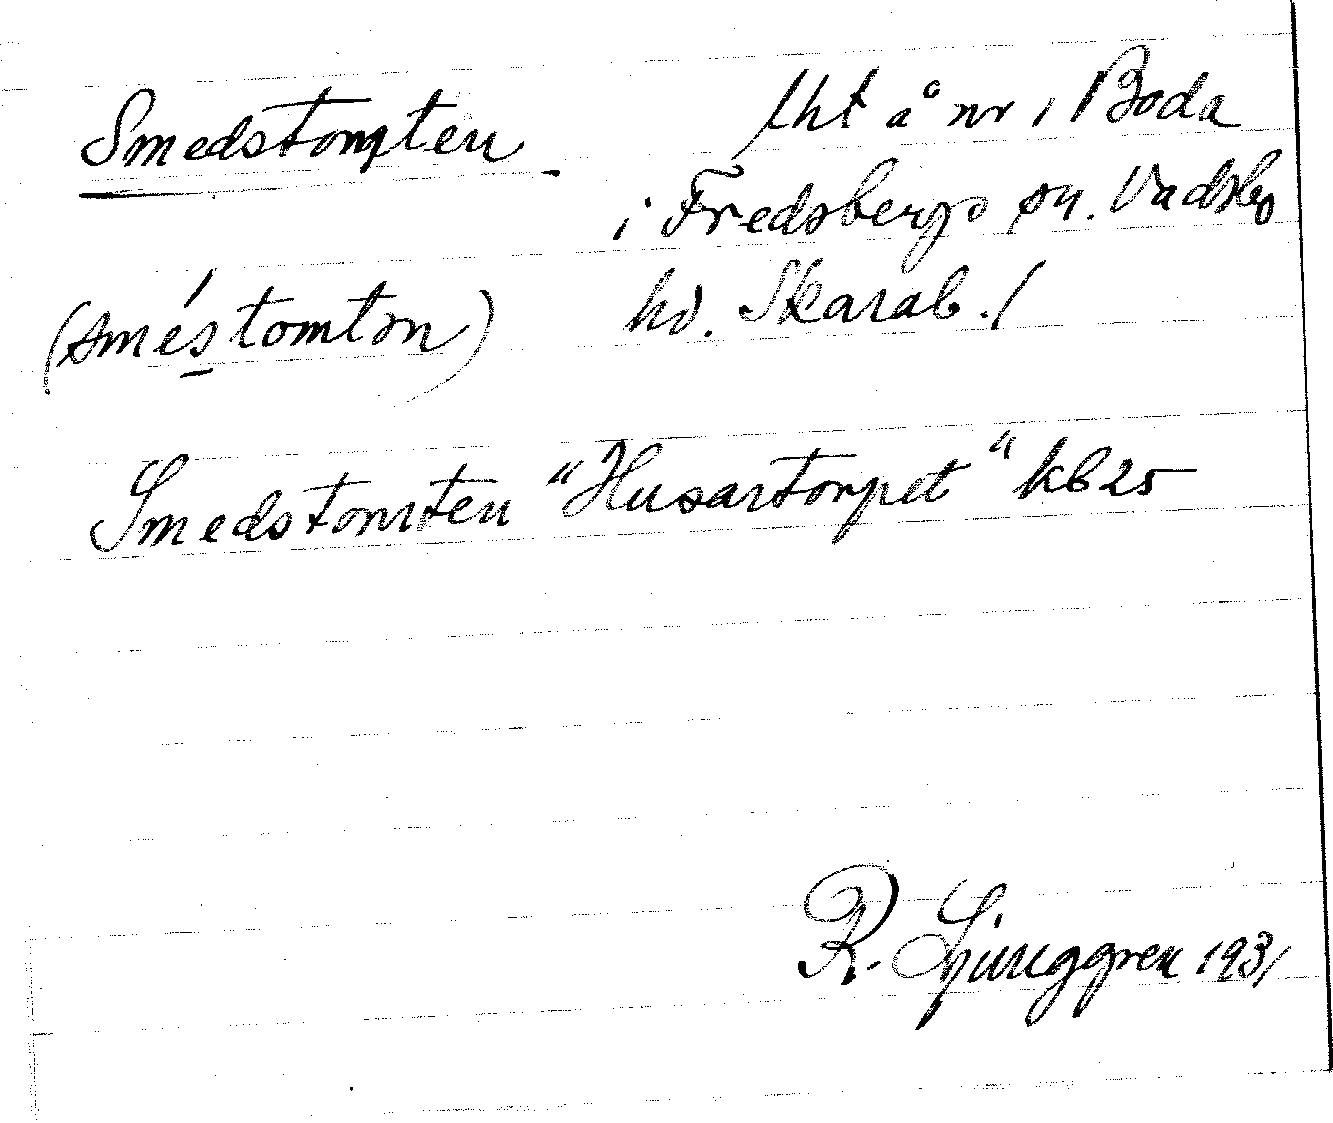 Smedstomten
lht å nr 1 Boda
i Fredsbergs sn. Vadsbo
hd. Skarab./
(smés̱tomtən)
Smedstomten "Husartorpet" kb 25
R. Ljunggren 1931